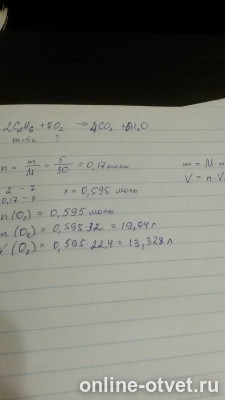 2C₂H₆ + 7O₂ => 4CO₂ + 6H₂O
m=5г ?
n = m/M = 5/30 = 0,17 моль m = M·n
2 - 7 x = 0,595 моль V = n·V
0,17 - x
n(O₂) = 0,595 моль
m(O₂) = 0,595·32 = 19,04г
V(O₂) = 0,595·22,4 = 13,328 л
online-otvet.ru